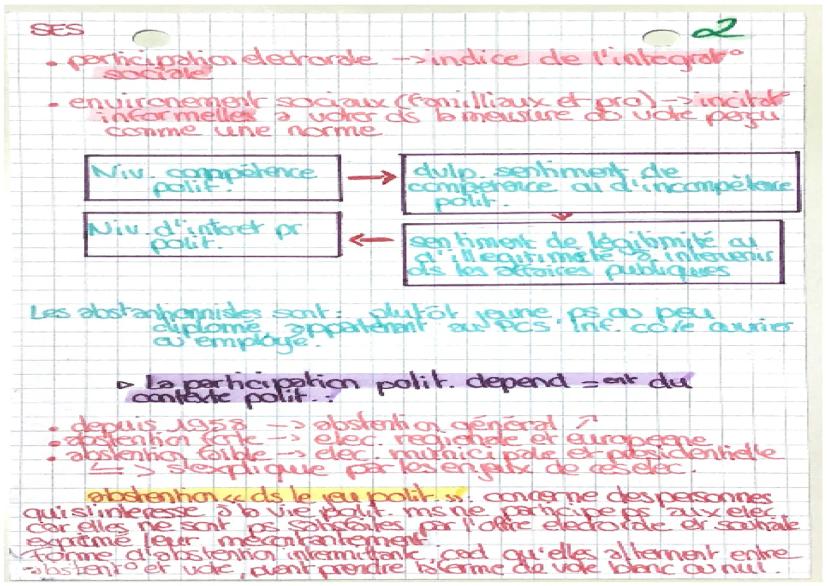 SES
2
• participation electorale -> indice de l'integrat°
sociale
• environement sociaux (familliaux et pro) -> incitat°
informelles à voter ds la mesure où vote perçu
comme une norme
Niv. compétence
polit.
->
dvlp. sentiment de
compétence ou d'incompétence
polit.
Niv. d'interet pr
polit.
<-
sentiment de légitimité ou
d'illegitimité à intervenir
ds les affaires publiques
Les abstentionnistes sont: plutôt jeune ps ou peu
diplome, appartenant au PCS inf. co/e ouvrier
ou employé.
▷ La participation polit. depend = ent du
contexte polit. :
• depuis 1958 -> abstention général ↗
• abstention forte -> elec. regionale et europeenne
• abstention faible -> élec. municipale et présidentielle
↳ > s'explique par les enjeux de ces elec.
abstention « ds le jeu polit. ». concerne des personnes
qui s'interesse à la vie polit. ms ne participe ps aux elec
car elles ne sont ps satisfaites par l'offre electorale et souhaite
exprimé leur mécontentement
Forme d'abstention intermittante, cad qu'elles alternent entre
abstent° et vote, peut prendre la forme de vote blanc ou nul.